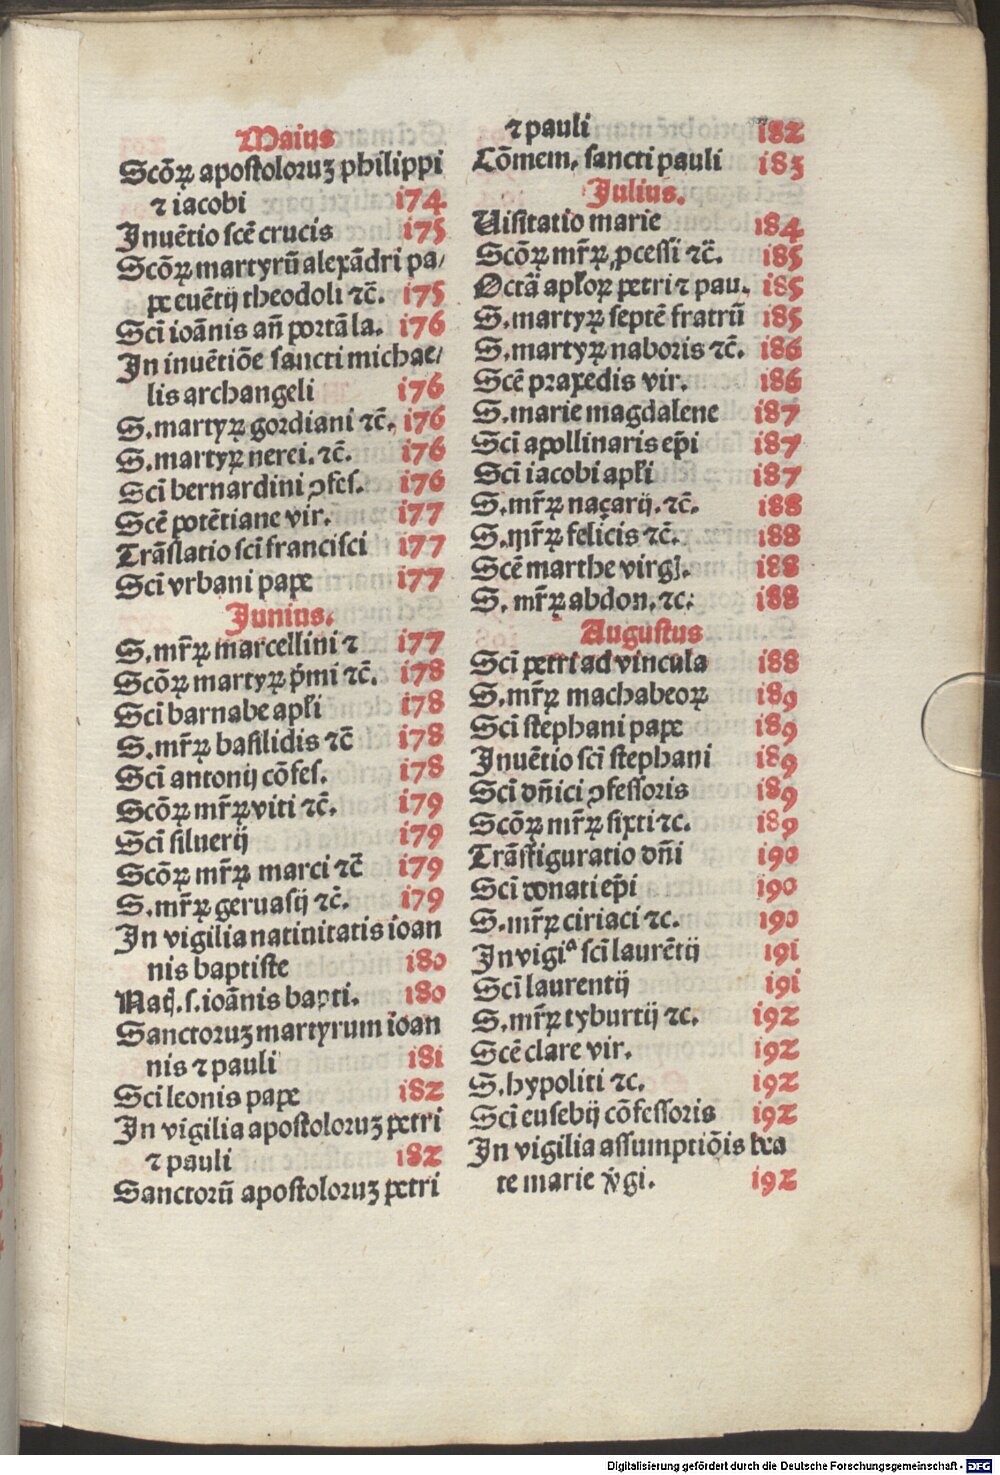 Maius
Scõꝝ apostoloruꝫ philippi
⁊ iacobi 174
Inuẽtio scẽ crucis 175
Scõꝝ martyrũ alexãdri pa/
pe euẽtij theodoli ⁊c̃. 175
Sci ioãnis añ portã la. 176
In inuẽtiõe sancti michae/
lis archangeli 176
S. martyꝝ gordiani ⁊c̃. 176
S. martyꝝ nerei. ⁊c̃. 176
Sci bernardini ꝯfes. 176
Scẽ potẽtiane vir. 177
Trãslatio sci francisci 177
Sci vrbani pape 177
Junius.
S. mr̃ꝝ marcellini ⁊ 177
Scõꝝ martyꝝ p̃mi ⁊c̃. 178
Sci barnabe apli 178
S. mr̃ꝝ basilidis ⁊c̃ 178
Sci antonij cõfes. 178
Scõꝝ mr̃ꝝ viti ⁊c̃. 179
Sci siluerij 179
Scõꝝ mr̃ꝝ marci ⁊c̃ 179
S. mr̃ꝝ geruasij ⁊c̃. 179
In vigilia natiuitatis ioan
nis baptiste 180
Natį. s. ioãnis bapti. 180
Sanctoruꝫ martyrum ioan
nis ⁊ pauli 181
Sci leonis pape 182
In vigilia apostoloruꝫ petri
⁊ pauli 182
Sanctorũ apostoloruꝫ petri
⁊ pauli 182
Cõmem. sancti pauli 183
Julius.
Uisitatio marie 184
Scõꝝ mr̃ꝝ ꝓcessi ⁊c̃. 185
Octã aploꝝ petri ⁊ pau. 185
S. martyꝝ septẽ fratrũ 185
S. martyꝝ naboris ⁊c̃. 186
Scẽ praxedis vir. 186
S. marie magdalene 187
Sci apollinaris ep̃i 187
Sci iacobi apli 187
S. mr̃ꝝ naçarij. ⁊c̃. 188
S. mr̃ꝝ felicis ⁊c̃. 188
Scẽ marthe virgı̃. 188
S. mr̃ꝝ abdon. ⁊c. 188
Augustus
Sci petri ad vincula 188
S. mr̃ꝝ machabeoꝝ 189
Sci stephani pape 189
Inuẽtio sci stephani 189
Sci dñici ꝯfessoris 189
Scõꝝ mr̃ꝝ sixti ⁊c. 189
Trãsfiguratio dñi 190
Sci donati ep̃i 190
S. mr̃ꝝ ciriaci ⁊c. 190
In vigiᵃ sci laurẽtij 191
Sci laurentij 191
S. mr̃ꝝ tyburtij ⁊c. 192
Scẽ clare vir. 192
S. hypoliti ⁊c. 192
Sci eusebij cõfessoris 192
In vigilia assumptiõis bea
te marie ṽgi. 192
Digitalisierung gefördert durch die Deutsche Forschungsgemeinschaft - DFG